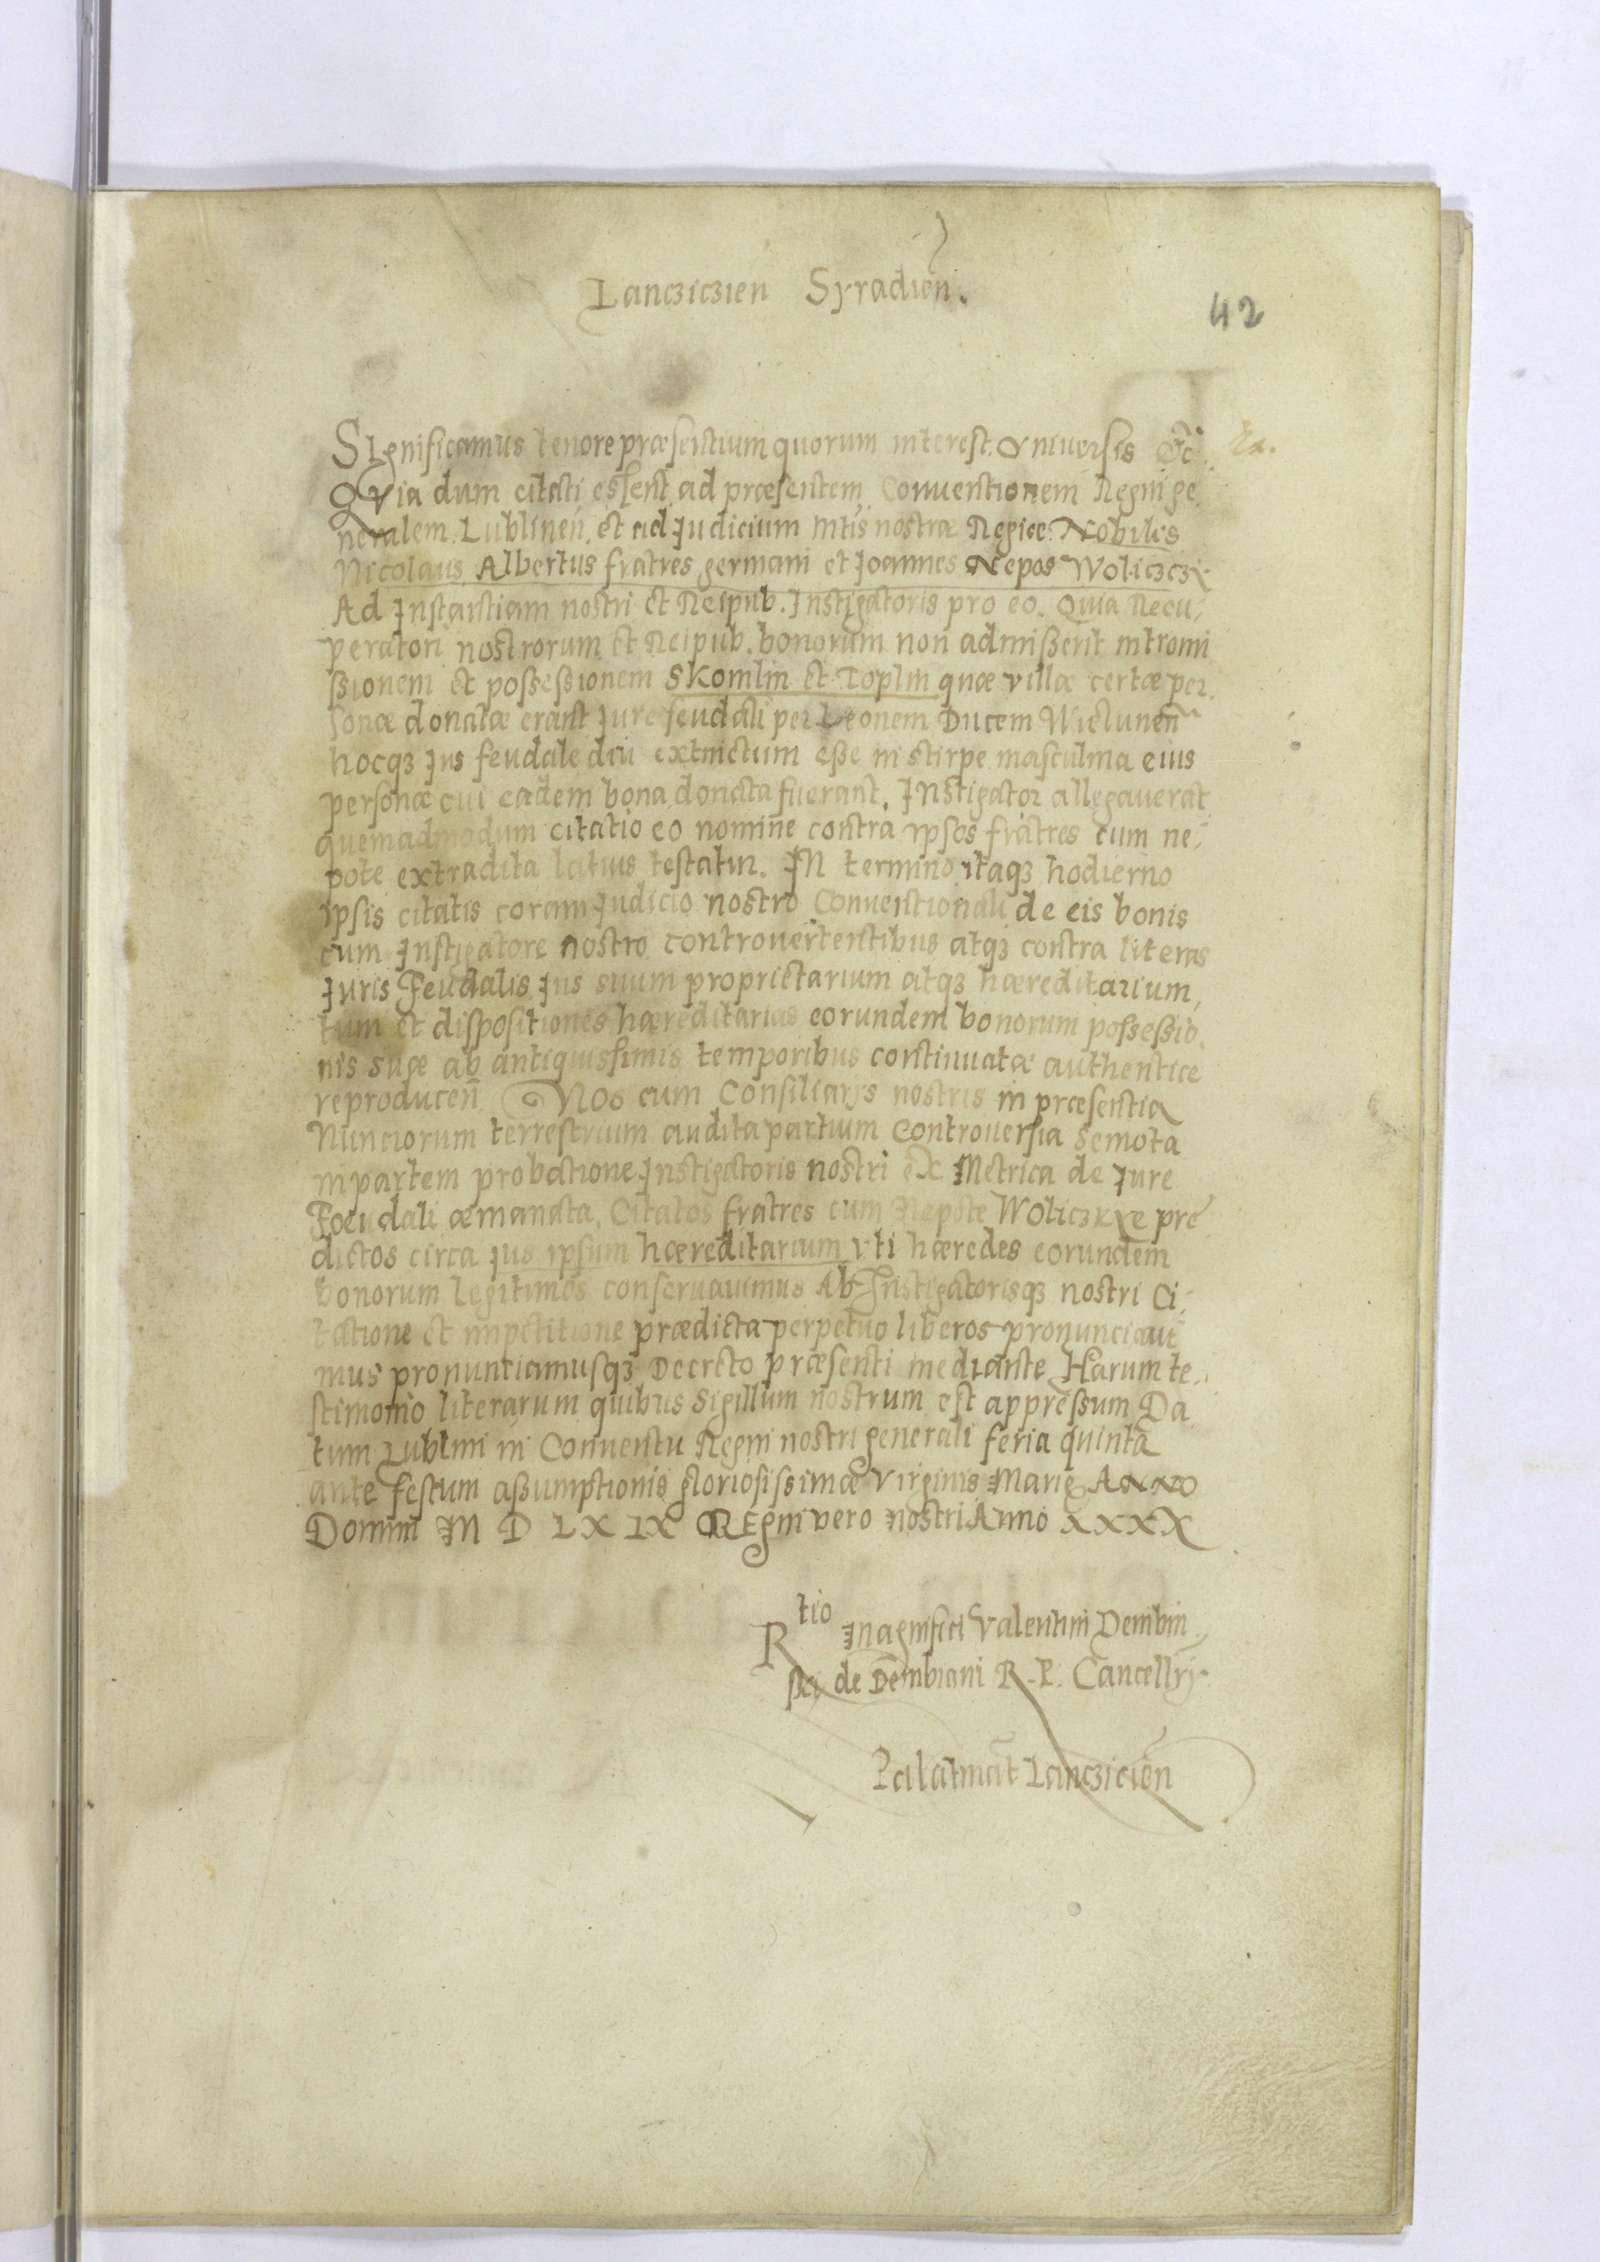 Lancziczien Syradien̄.
42
SIgnificamus tenore præsentium quorum interest Vniuersis &c̄.
QVia dum citati essent ad præsentem Conuentionem Regni ge
neralem Lublinen̄. et ad Judicium Mt̄is nostræ Regiæ Nobiles
Nicolaus Albertus fratres germani et Joannes Nepos Woliczczÿ
Ad Instantiam nostri et Reipub. Instigatoris pro eo. Quia Recu/
peratori nostrorum et Reipub. bonorum non admißerit intromi
ßionem et poßeßionem Skomlin et Toplin quæ villæ certæ per
sonæ donatæ erant Jure feudali per Leonem Ducem Wielunen̄
hocqʒ Jus feudale diu extinctum eße in stirpe masculina eius
personæ cui eædem bona donata fuerant. INstigator allegauerat
quemadmodum citatio eo nomine contra ipsos fratres cum ne/
pote extradita latius testatur. IN termino itaqʒ hodierno
ipsis citatis coram Judicio nostro Conuentionali de eis bonis
cum Instigatore nostro controuertentibus atqʒ contra literas
Juris Feudalis Jus suum proprietarium atqʒ hæreditarium,
tum et dispositiones hæreditarias eorundem bonorum poßeßio
nis suæ ab antiquissimis temporibus continuatæ authentice
reproducen̄ NOs cum Consiliarijs nostris in præsentia
Nunciorum terrestrium audita partium Controuersia Semota
in partem probatione Instigatoris nostri ex Metrica de Jure
Foeudali æmanata, Citatos fratres cum Nepote Woliczkÿe præ
dictos circa jus ipsum hæreditarium vti hæredes eorundem
bonorum Legitimos conseruauimus Ab Instigatorisqʒ nostri Ci/
tatione et impetitione prædicta perpetuo liberos pronunciaui
mus pronunciamusqʒ Decreto præsenti mediante Harum te/
stimonio literarum quibus Sigillum nostrum est appreßum Da
tum Lublini in Conuentu Regni nostri generali feria quinta
ante festum aßumptionis gloriosissimæ Virginis Marię ANNO
Domini M D LX IX REgni vero nostri Anno XXXX
Rtio Magnifici Valentini Dembin
ßki de Dembiani R. P. Cancellrÿ.
Palatinat Lancziciēn